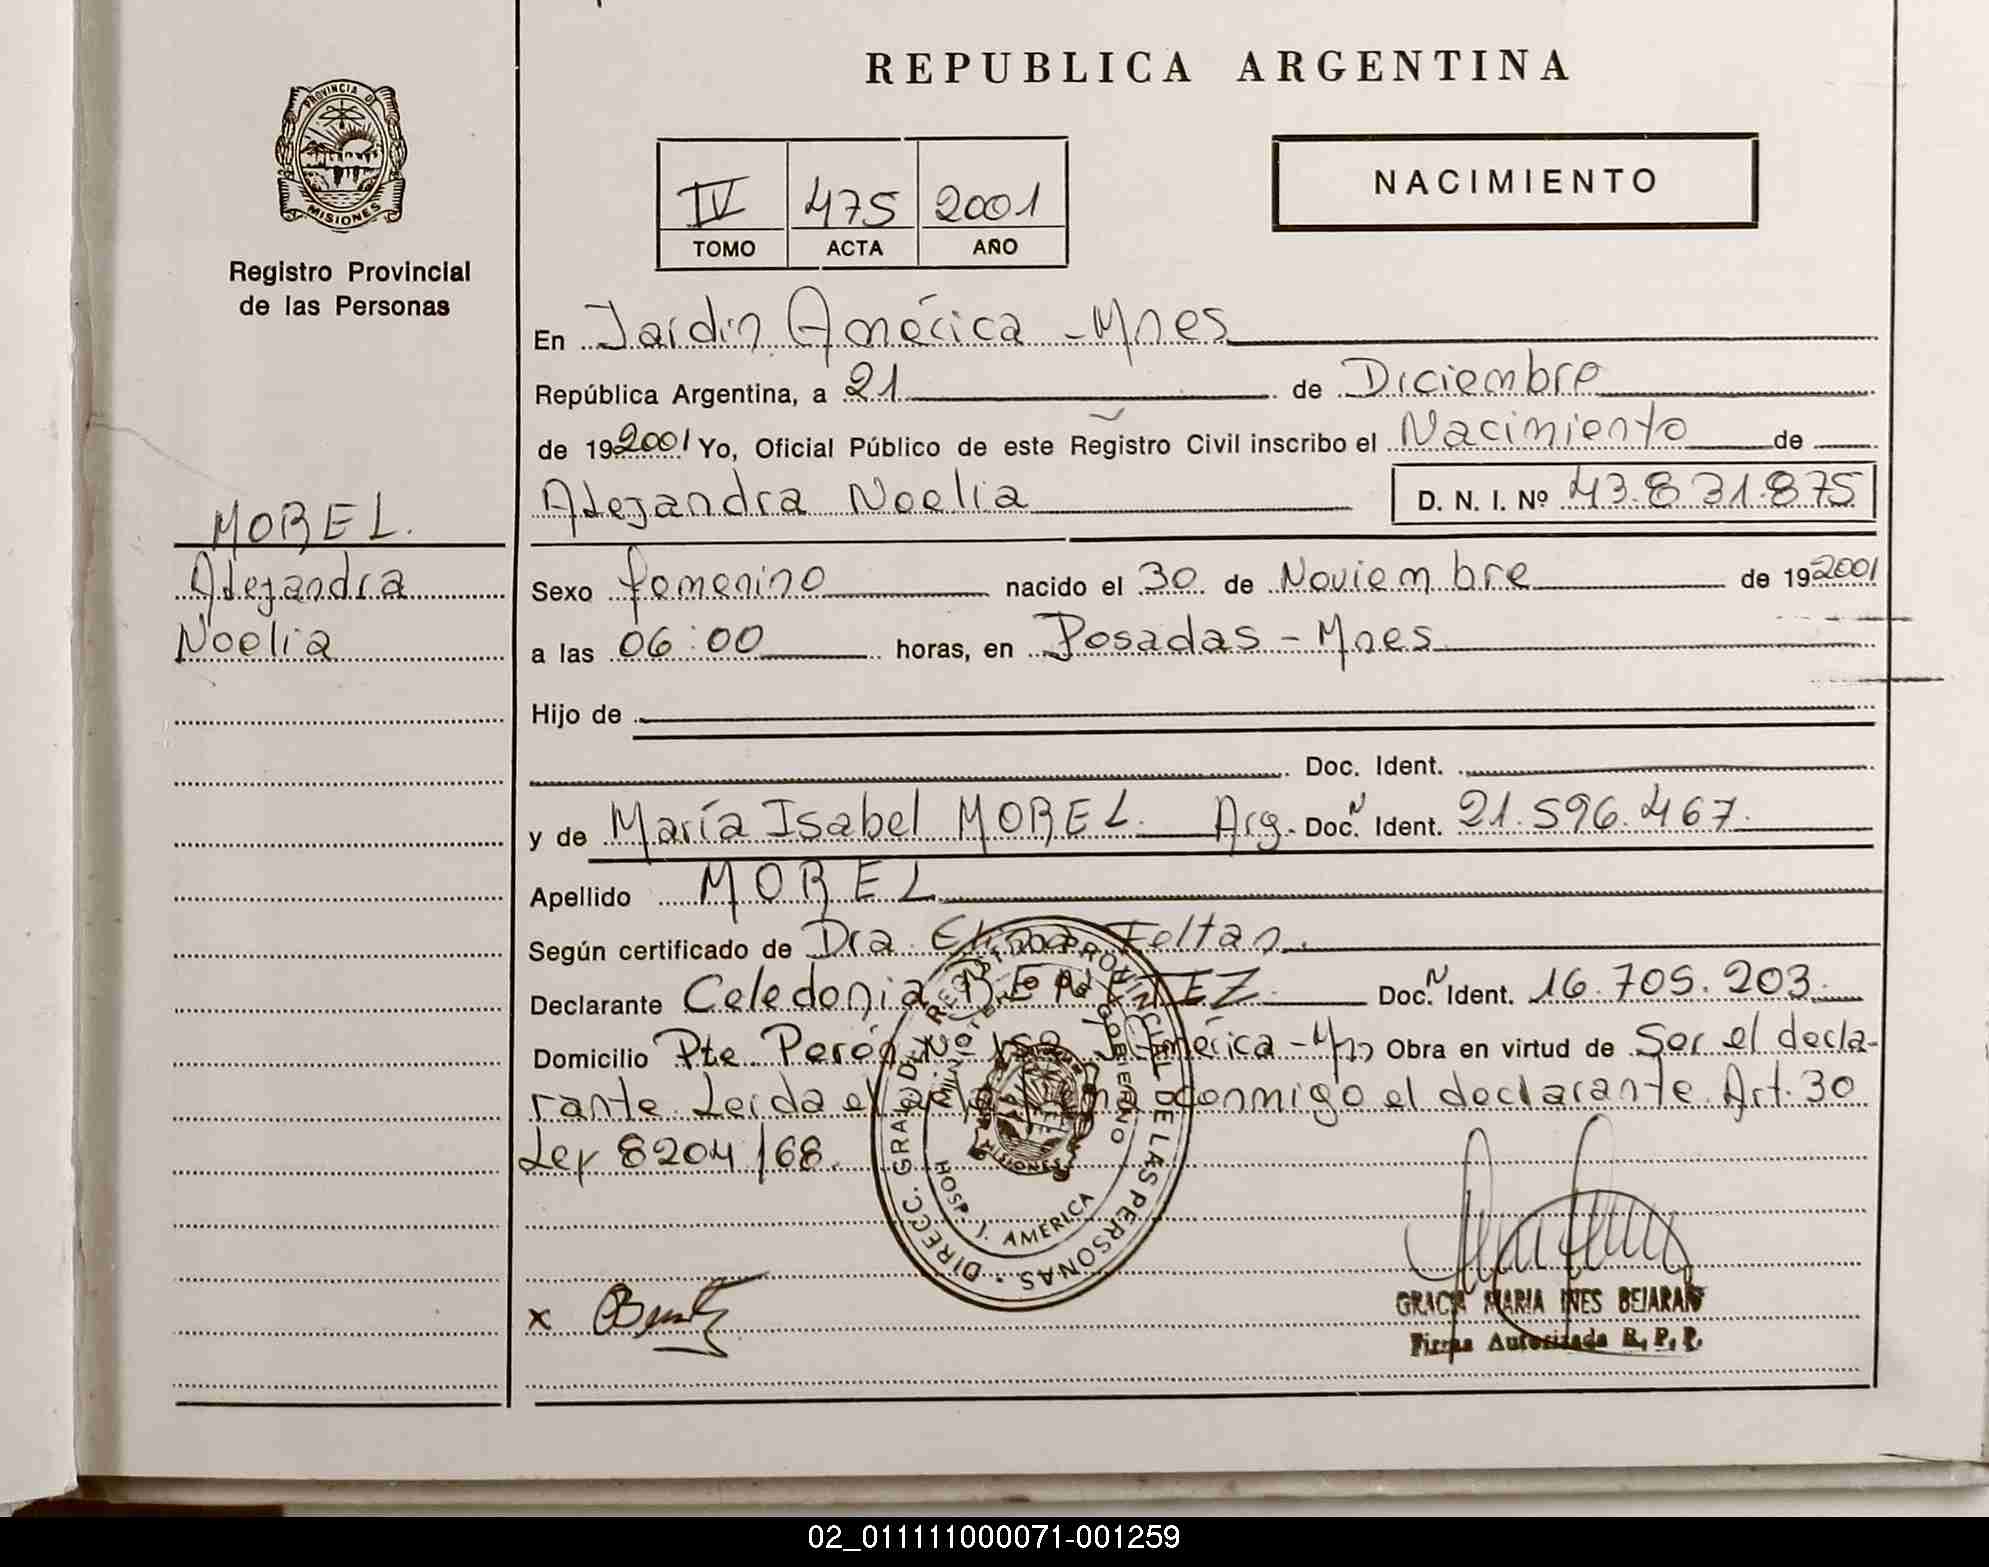 REPUBLICA ARGENTINA
PROVINCIA DE
MISIONES
Registro Provincial
de las Personas
IV 475 2001
TOMO ACTA AÑO
NACIMIENTO
En Jardin América - Mnes
República Argentina, a 21 de Diciembre
de 192001 Yo, Oficial Público de este Registro Civil inscribo el Nacimiento de
Alejandra Noelia D. N. I. Nº 43.831.875
MOREL.
Alejandra
Noelia
Sexo femenino nacido el 30 de Noviembre de 192001
a las 06:00 horas, en Posadas - Mnes
Hijo de
Doc. Ident.
y de María Isabel MOREL. Arg. Doc. N Ident. 21.596.467.
Apellido MOREL
Según certificado de Dra. Feltan.
Declarante Celedonia BENITEZ. Doc. N Ident. 16.705.203.
Domicilio Pte. Perón Nº J. América - Mnes Obra en virtud de Ser el decla-
rante. Leida el conmigo el declarante. Art. 30
Ley 8204/68.
DIRECC. GRAL. DEL REGISTRO PROVINCIAL DE LAS PERSONAS
MINISTERIO DE GOBIERNO
MISIONES
HOSP. J. AMERICA
x
GRACIA MARIA INES BEJARANO
Firma Autorizada R. P. P.
02_011111000071-001259